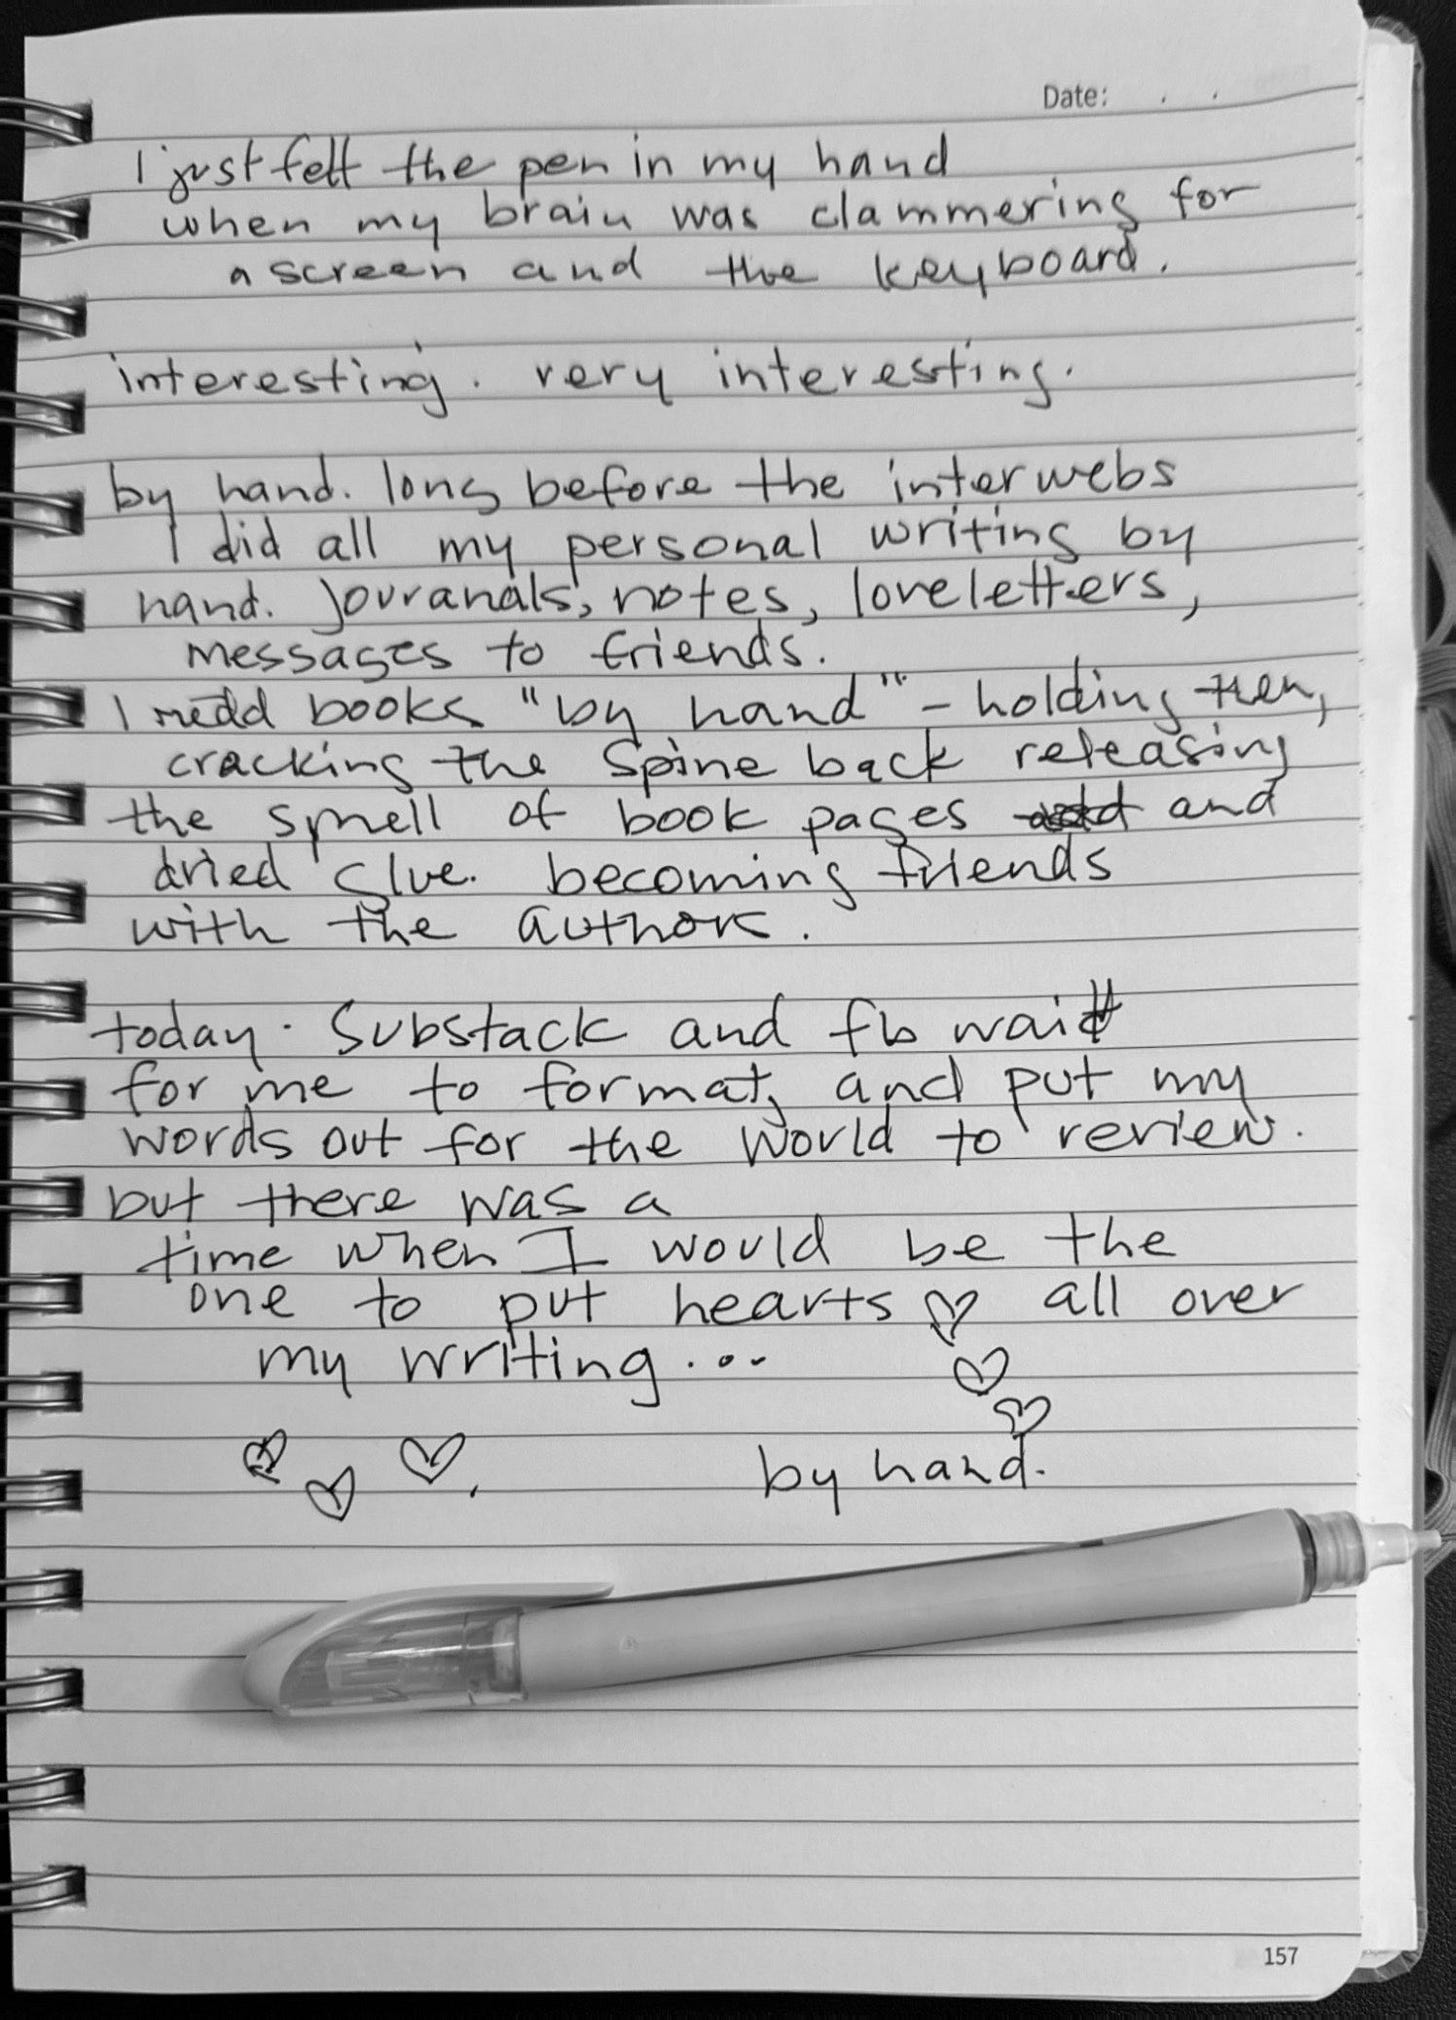 Date: . .
I just felt the pen in my hand
when my brain was clammering for
a screen and the keyboard.
interesting. very interesting.
by hand. long before the interwebs
I did all my personal writing by
hand. Jouranals, notes, loveletters,
messages to friends.
I books "by hand" - holding them,
cracking the spine back releasing
the smell of book pages and
dried glue. becoming friends
with the authors.
today. Substack and fb wait
for me to format, and put my
words out for the world to review.
but there was a
time when I would be the
one to put hearts ♡ all over
my writing...
♡
♡
♡ ♡ ♡. by hand.
157